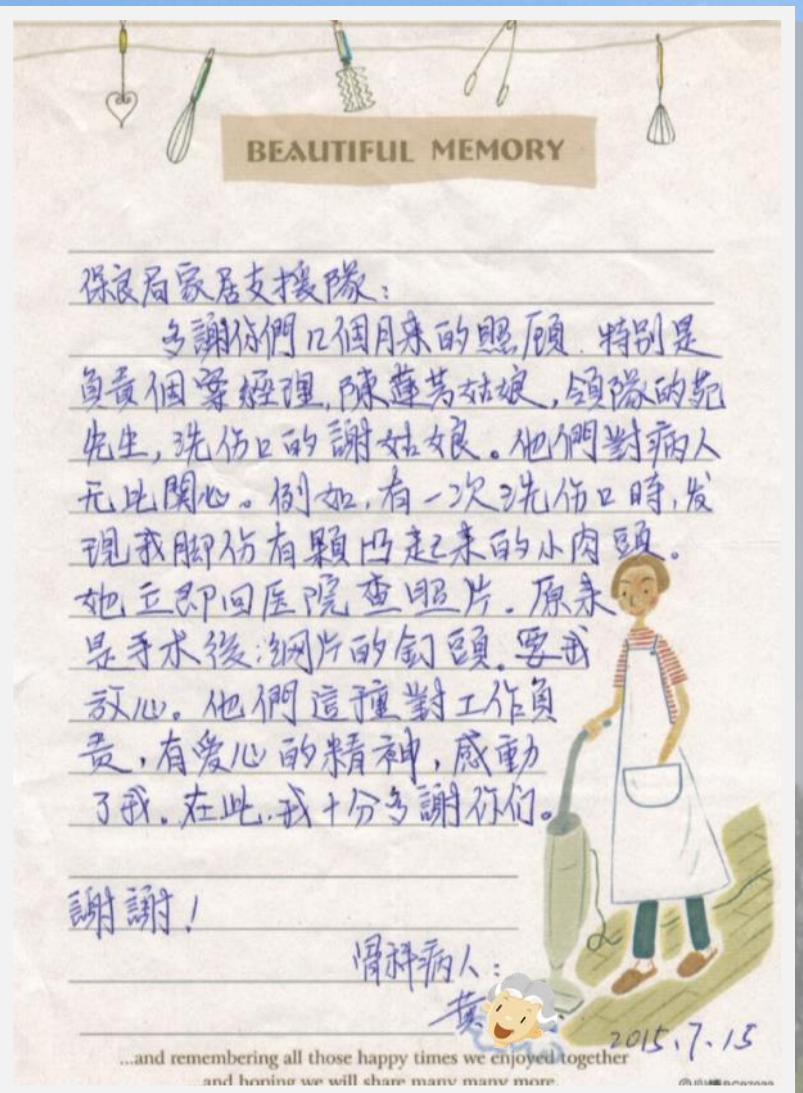 BEAUTIFUL MEMORY
保良局家居支援隊：
多謝你們12個月来的照顧．特别是
負責個案經理，陳蓮芳姑娘，領隊的范
先生，洗伤口的謝姑娘。他們對病人
无比關心。例如，有一次洗伤口時，发
現我脚伤有顆凸起来的小肉頭。
她立即回医院查照片．原来
是手术後鋼片的釘頭．要我
放心。他們這種對工作負
责，有爱心的精神，感動
了我．在此．我十分多謝你们。
謝謝！
骨科病人：
黄
2015.7.15
...and remembering all those happy times we enjoyed together
and hoping we will share many many more.